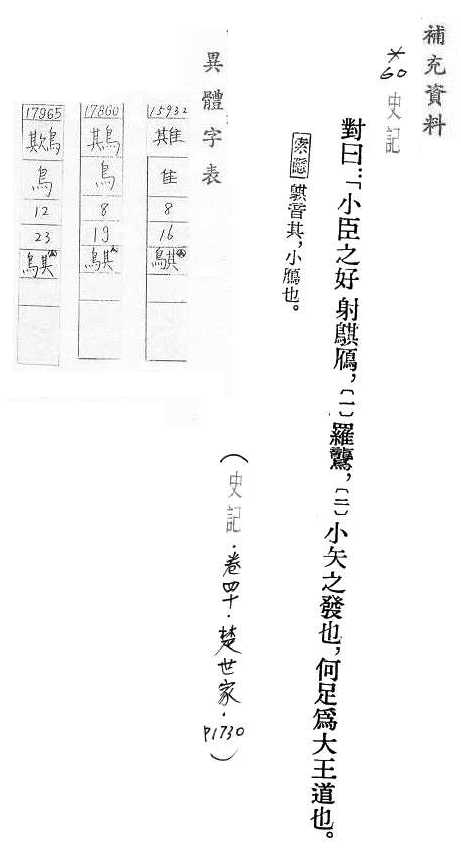 補充資料
*60 史記
對曰:「小臣之好射鶀鴈,〔一〕羅鸗,〔二〕小矢之發也,何足爲大王道也。
索隱 鶀音其,小鴈也。
(史記.卷四十.楚世家.P1730)
異體字表
15932
隹
8
16
鶀
17860
鶀
鳥
8
19
鶀
17965
鳥
12
23
鶀